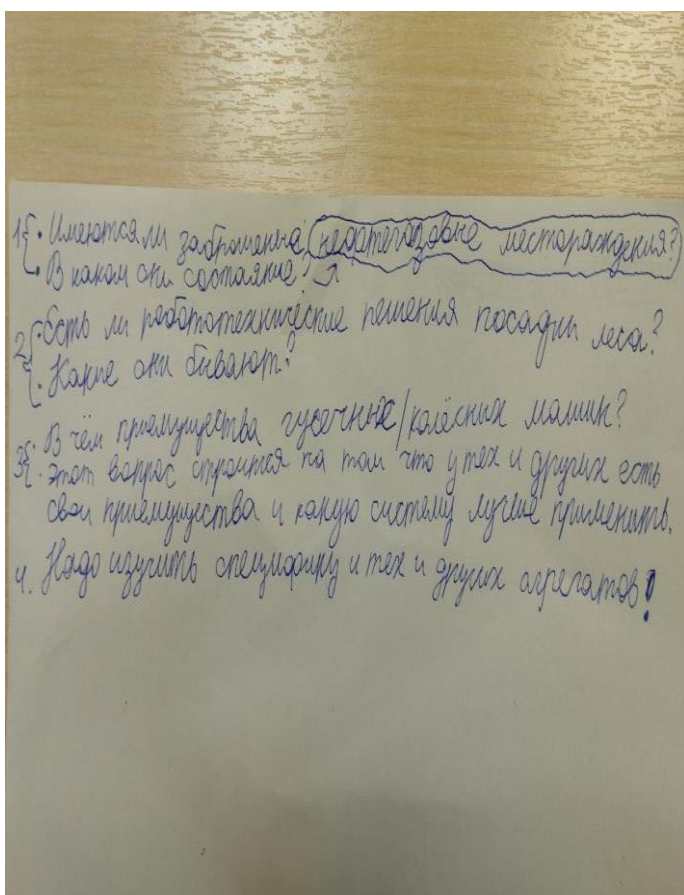 1{. Имеются ли заброшеные нефтегазовые местораждения?
. В каком они состояние?
2{. Есть ли робототехнические решения посадки леса?
. Какие они бывают?
3{. В чём приемущества гусечных/колёсных машин?
. Этот вопрос строится на том что у тех и других есть
свои приемущества и какую систему лучше применить.
4. Надо изучить специфику и тех и других агрегатов!